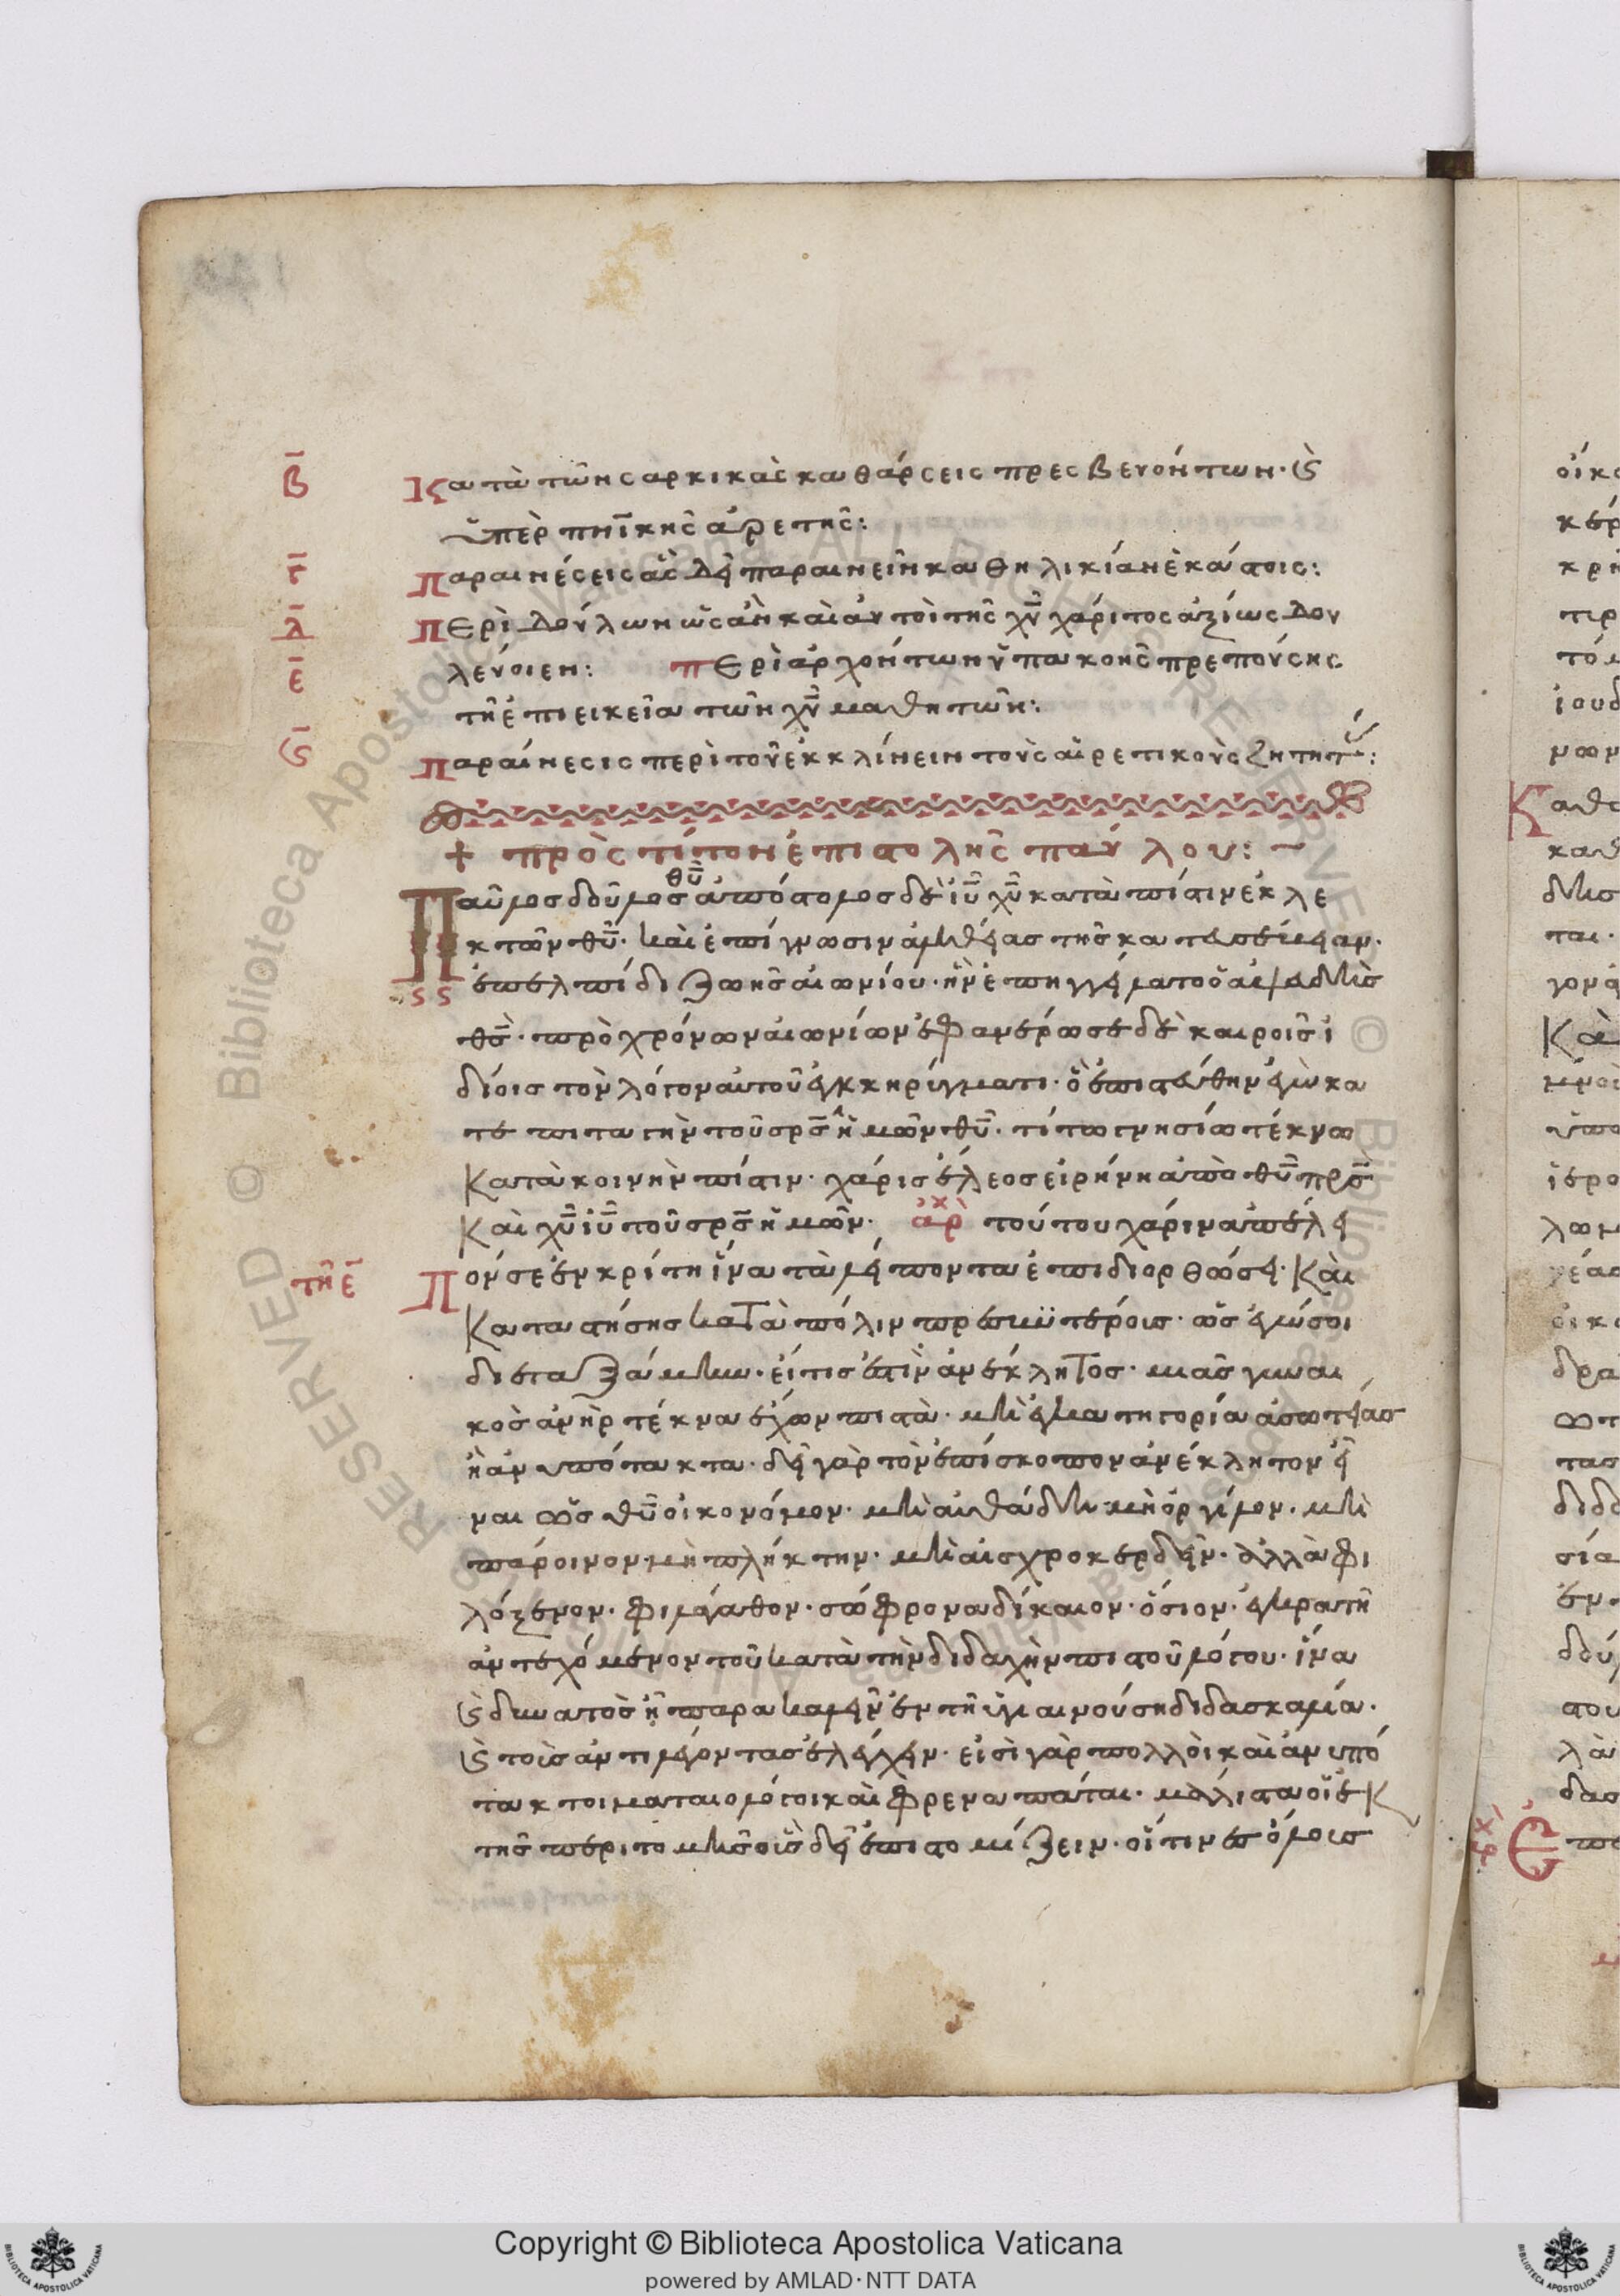 β̅ Κατὰ τῶν σαρκικὰς καθάρσεις πρεσβευόντων· ϗ
ὑπὲρ πν̅ικῆς ἀρετῆς:
γ̅ Παραινέσεις ἃς δεῖ παραινεῖν καθ ηλικίαν ἑκάστοις:
δ̅ Περὶ δούλων ὡς ἂν καὶ αὐτοὶ τῆς χυ̅ χάριτος ἀξίως δου
ε̅ λεύοιεν: Περὶ ἀρχόντων ὑπακοῆς πρεπούσης
τῆ ἐπιεικεῖα τῶν χυ̅ μαθητῶν:
ϛ̅ Παραίνεσις περὶ τοῦ ἐκκλίνειν τοὺς αἱρετικοὺς ζητητ:
+ πρὸς τίτον ἐπιστολῆς παύλου: ~
Παῦλος δοῦλος θυ̅ ἀπόστολος δὲ ἰυ̅ χυ̅ κατὰ πίστιν ἐκλε
κτῶν θυ̅· καὶ ἐπίγνωσιν ἀληθείας τῆς κατευσέβειαν·
ἐπελπίδι ζωῆς αἰωνίου· ἣν ἐπηγγείλατο ὁ αἰψευδὴς
θς̅· πρὸ χρόνων αἰωνίων ἐφανέρωσε δὲ καιροῖς ἰ
δίοις τὸν λόγον αὐτοῦ ἐν κηρύγματι· ὃ ἐπιστεύθην ἐγὼ κα
τε πιταγὴν τοῦ σρς̅ ἡμῶν θυ̅· τίτω γνησίω τέκνω
Κατὰ κοινὴν πίστιν· χάρις ἔλεος εἰρήνη ἀπὸ θυ̅ πρς̅
Καὶ χυ̅ ἰυ̅ τοῦ σρς̅ ἡμῶν· ἀρχ τούτου χάριν ἀπέλει
τῆ ε̅ Πόν σε ἐν κρίτη ἵνα τὰ λείποντα ἐπιδιορθώσει· Καὶ
Καταστήσης κατὰ πόλιν πρεσβυτέροις· ὡς ἐγώ σοι
διεταξάμην· εἴ τις ἐστὶν ἀνέκλητος· μιᾶς γυναι
κὸς ἀνὴρ τέκνα ἔχων πιστὰ· μὴ ἐν κατηγορία ἀσωτείας
ἢ ἀνυπότακτα· δεῖ γὰρ τὸν ἐπίσκοπον ἀνέκλητον εἶ
ναι ὡς θυ̅ οἰκονόμον· μὴ αὐθάδην μὴ ὀργίλον· μὴ
πάροινον· μὴ πλήκτην· μὴ αἰσχροκερδεῖν· ἀλλὰ φι
λόξενον· φιλάγαθον· σώφρονα δίκαιον· ὅσιον· ἐγκρατῆ
ἀντεχόμενον τοῦ κατὰ τὴν διδαχὴν πιστοῦ λόγου· ἵνα
ϗ δυνατὸς ἦ παρακαλεῖν ἐν τῆ ὑγιαινούση διδασκαλία·
ϗ τοὺς ἀντιλέγοντας ἐλέγχειν· εἰσὶ γὰρ πολλοὶ καὶ ἀνυπό
τακτοι ματαιολόγοι καὶ φρεναπάται· μάλιστα οἱ ἐκ
τῆς περιτομῆς οὓς δεῖ ἐπιστομίζειν· οἵτινες ὅλους
Copyright © Biblioteca Apostolica Vaticana
powered by AMLAD·NTT DATA